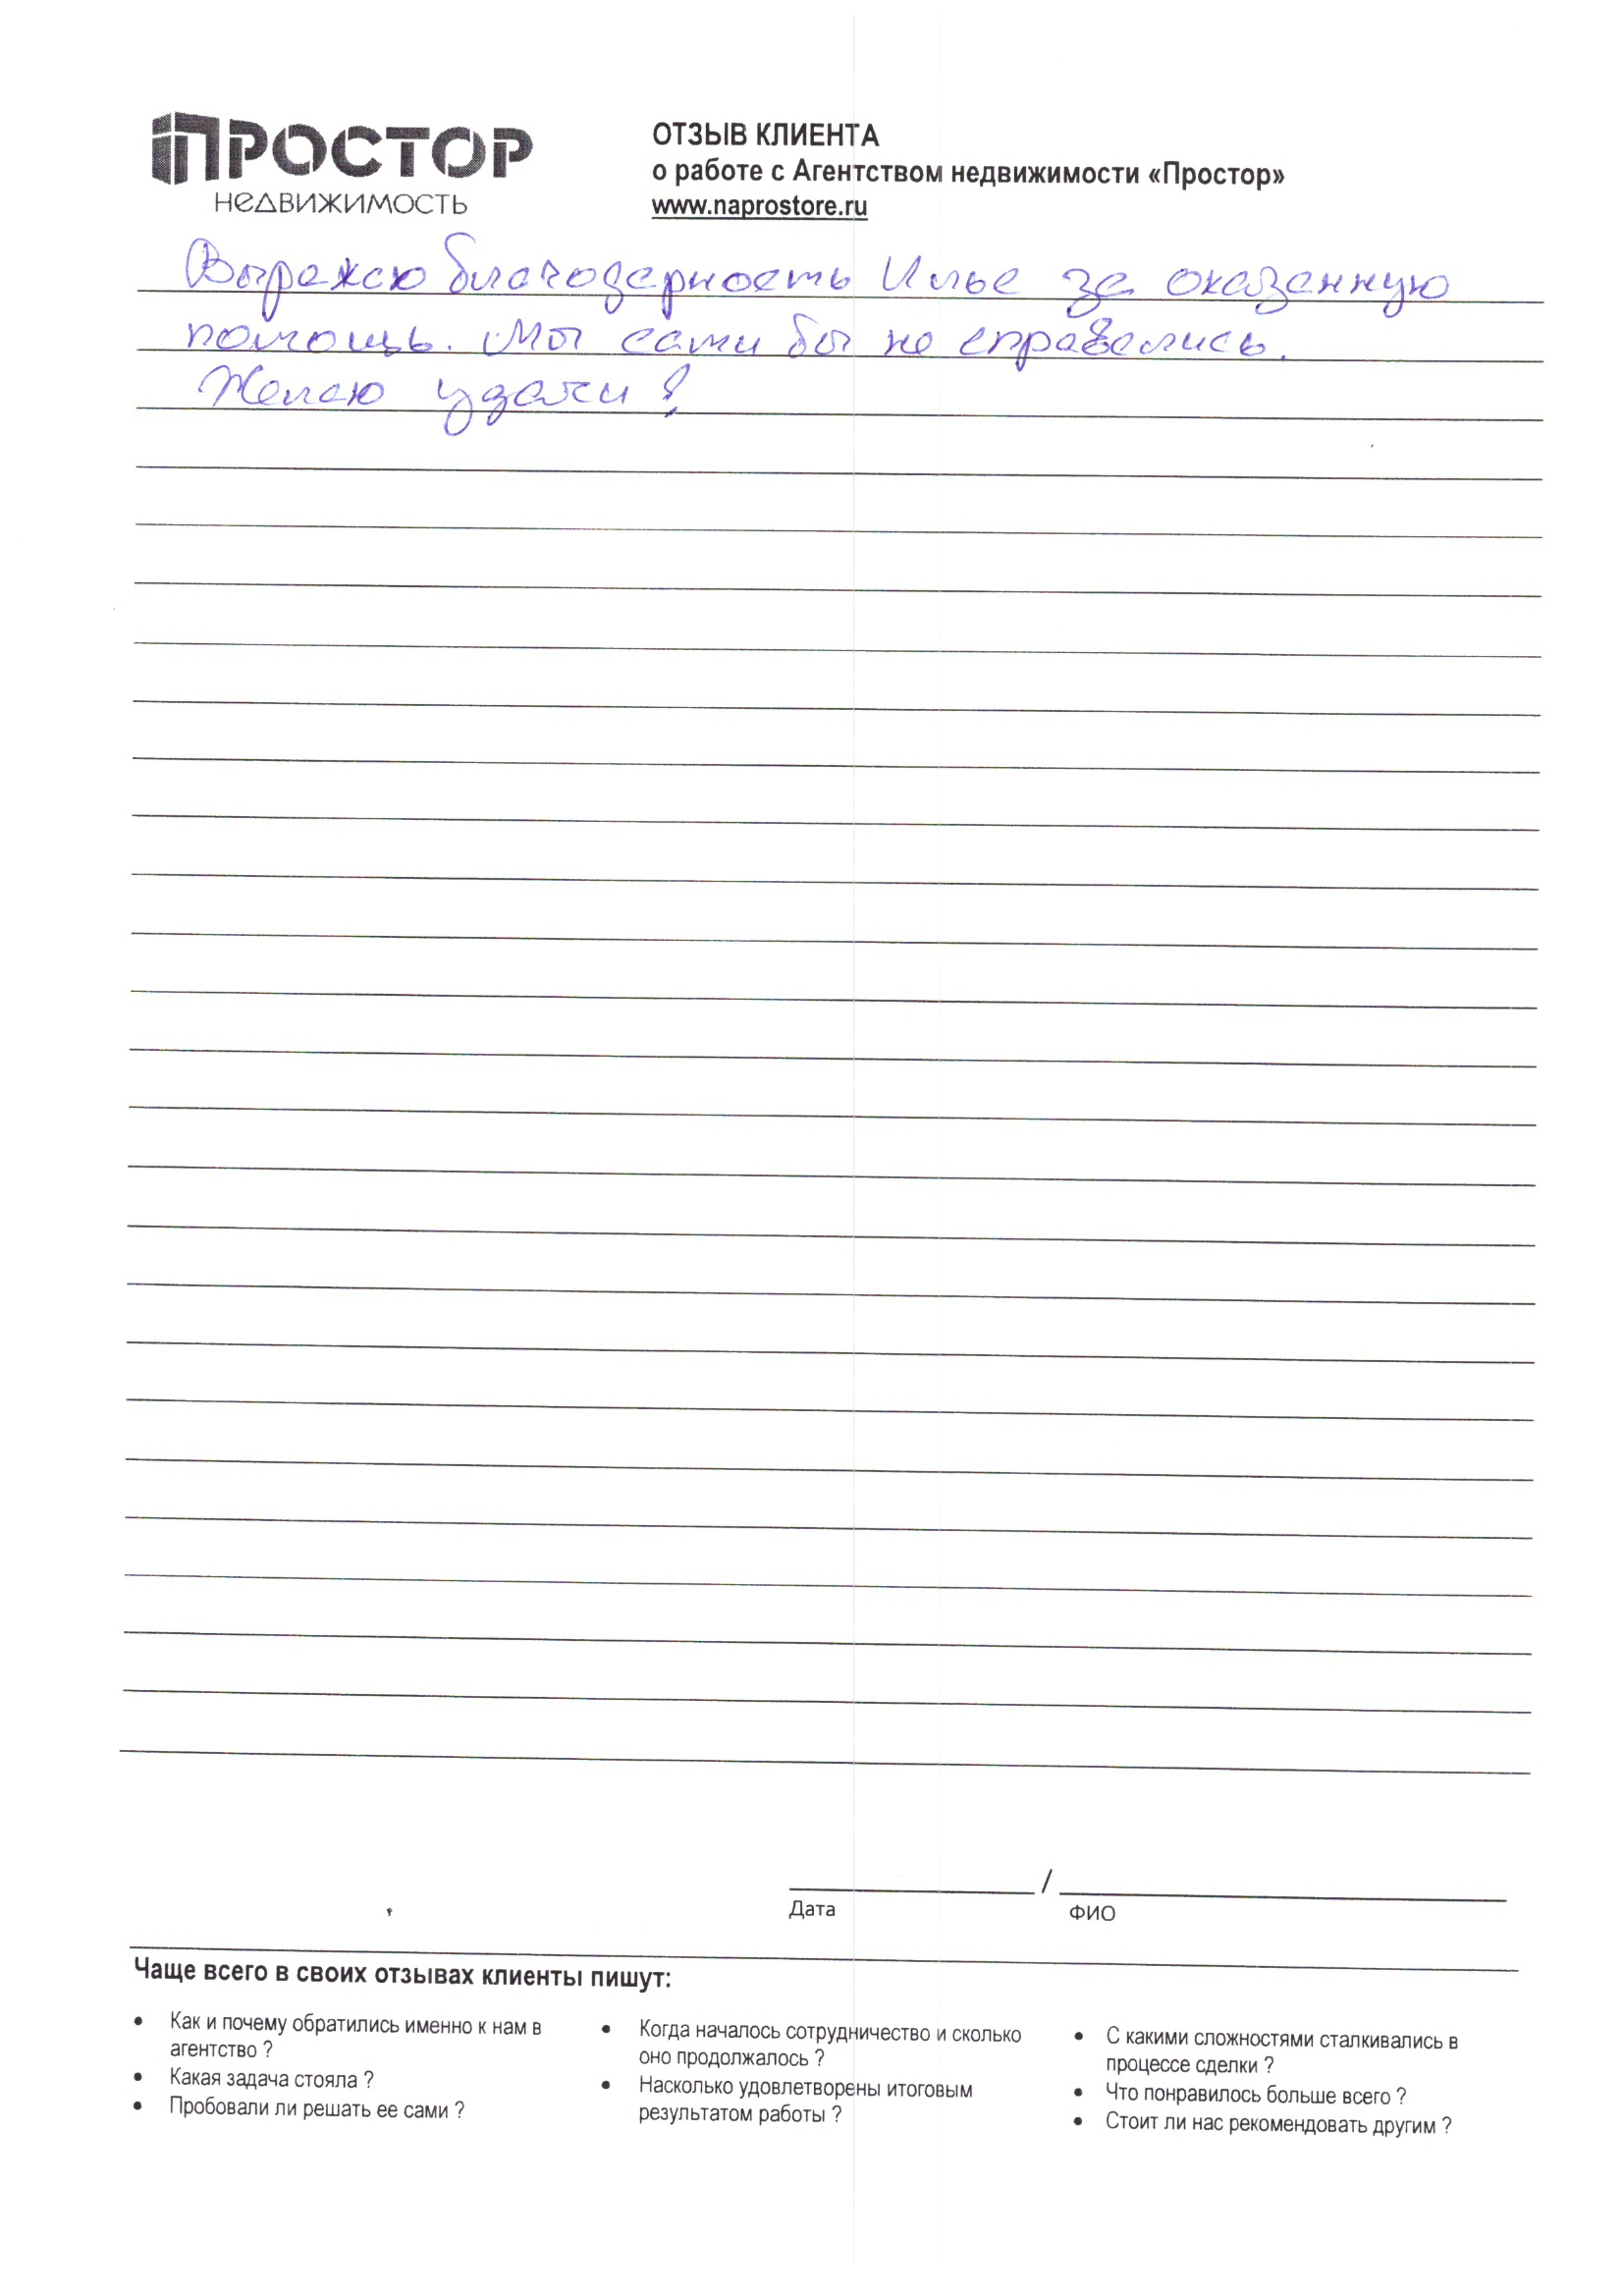 ПРОСТОР
НЕДВИЖИМОСТЬ
ОТЗЫВ КЛИЕНТА
о работе с Агентством недвижимости «Простор»
www.naprostore.ru
Выражаю благодарность Илье за оказанную
помощь. Мы сами бы не справились.
Желаю удачи!
/
Дата
ФИО
Чаще всего в своих отзывах клиенты пишут:
• Как и почему обратились именно к нам в
агентство ?
• Какая задача стояла ?
• Пробовали ли решать ее сами ?
• Когда началось сотрудничество и сколько
оно продолжалось ?
• Насколько удовлетворены итоговым
результатом работы ?
• С какими сложностями сталкивались в
процессе сделки ?
• Что понравилось больше всего ?
• Стоит ли нас рекомендовать другим ?